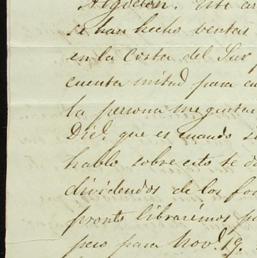 Algodon. Este ar
se han hecho ventas
en la Costa del Sur
cuenta mitad para cu
la persona me gusta
Dic.e que es cuando s
hablo sobre esto se d
dividendos de los fo
pronto libraremos p
pero para Nov.e 19.